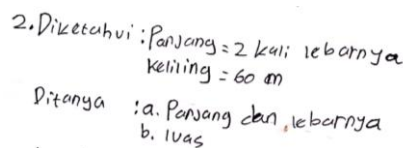 2. Diketahui : Panjang = 2 kali lebarnya
Keliling = 60 m
Ditanya : a. Panjang dan lebarnya
b. luas